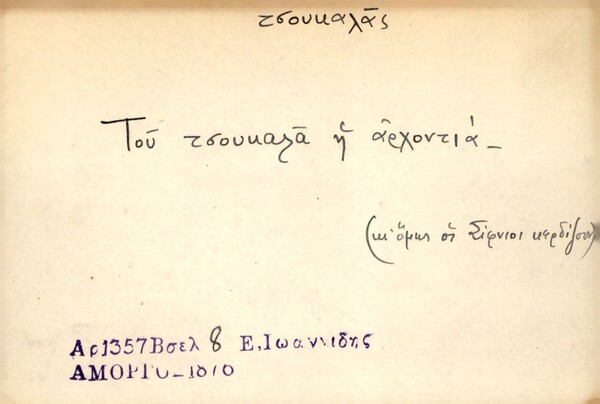 τσουκαλᾶς
Τοῦ τσουκαλᾶ ἡ ἀρχοντιά_
(κι' ὅμως οἱ Σίφνιοι κερδίζουν)
Αρ1357Βσελ 8 Ε.Ιωαννιδης
ΑΜΟΡΓΟ_1876